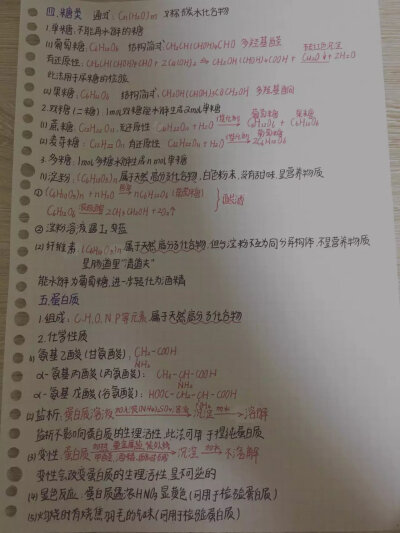 四.糖类 通式:Cn(H2O)m 又称碳水化合物
1.单糖:不能再水解的糖
(1)葡萄糖:C6H12O6 结构简式:CH2OH(CHOH)4CHO 多羟基醛
有还原性:CH2OH(CHOH)4CHO + 2Cu(OH)2 → CH2OH(CHOH)4COOH + Cu2O↓ + 2H2O
此法用于尿糖的检验
(2)果糖:C6H12O6 结构简式:CH2OH(CHOH)3COCH2OH 多羟基酮
2.双糖(二糖) 1mol双糖能水解生成2mol单糖
(1)蔗糖:C12H22O11 无还原性 C12H22O11 + H2O 催化剂 葡萄糖 C6H12O6 + 果糖 C6H12O6
(2)麦芽糖:C12H22O11 有还原性 C12H22O11 + H2O 催化剂 葡萄糖 2C6H12O6
3.多糖:1mol多糖水解生成n mol单糖
(1)淀粉:(C6H10O5)n 属于天然高分子化合物,白色粉末,没有甜味,是营养物质
①(C6H10O5)n + nH2O → nC6H12O6(葡萄糖)
C6H12O6 → 2CH3CH2OH + 2CO2↑ 酿酒
②淀粉溶液遇I2变蓝
(2)纤维素:(C6H10O5)n 属于天然高分子化合物,但与淀粉不互为同分异构体 不是营养物质
是肠道里"清道夫"
能水解为葡萄糖,进一步转化为酒精
五.蛋白质
1.组成:C.H.O.N.P等元素.属于天然高分子化合物
2.化学性质
(1)氨基乙酸(甘氨酸):CH2-COOH NH2
α-氨基丙酸(丙氨酸):CH3-CH-COOH NH2
α-氨基戊二酸(谷氨酸):HOOC-CH2-CH2-CH-COOH NH2
(2)盐析:蛋白质溶液 → 沉淀 → 溶解
盐析不影响蛋白质的生理活性,此法可用于提纯蛋白质
(3)变性:蛋白质 → 沉淀 → 不溶解
变性会改变蛋白质的生理活性 是不可逆的
(4)显色反应:蛋白质遇浓HNO3显黄色(可用于检验蛋白质)
(5)灼烧时有烧焦羽毛的气味(可用于检验蛋白质)